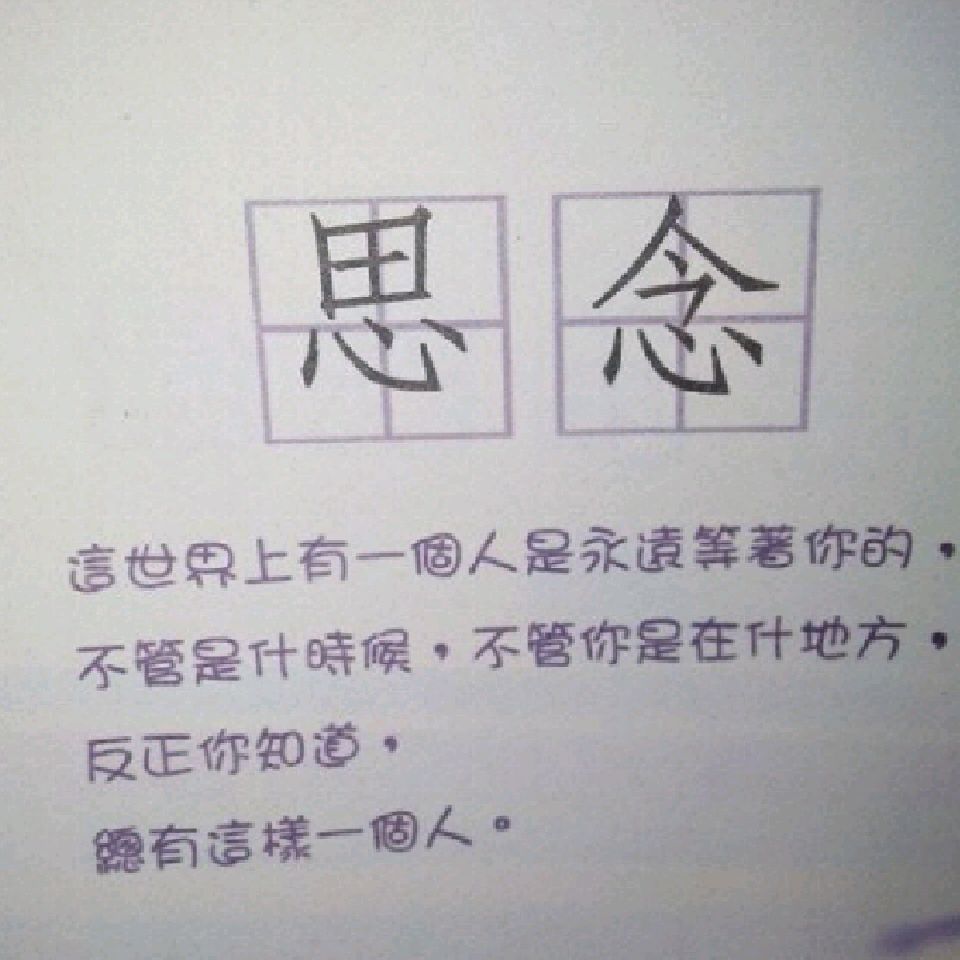 思念
這世界上有一個人是永遠等著你的，
不管是什時候，不管你是在什地方，
反正你知道，
總有這樣一個人。